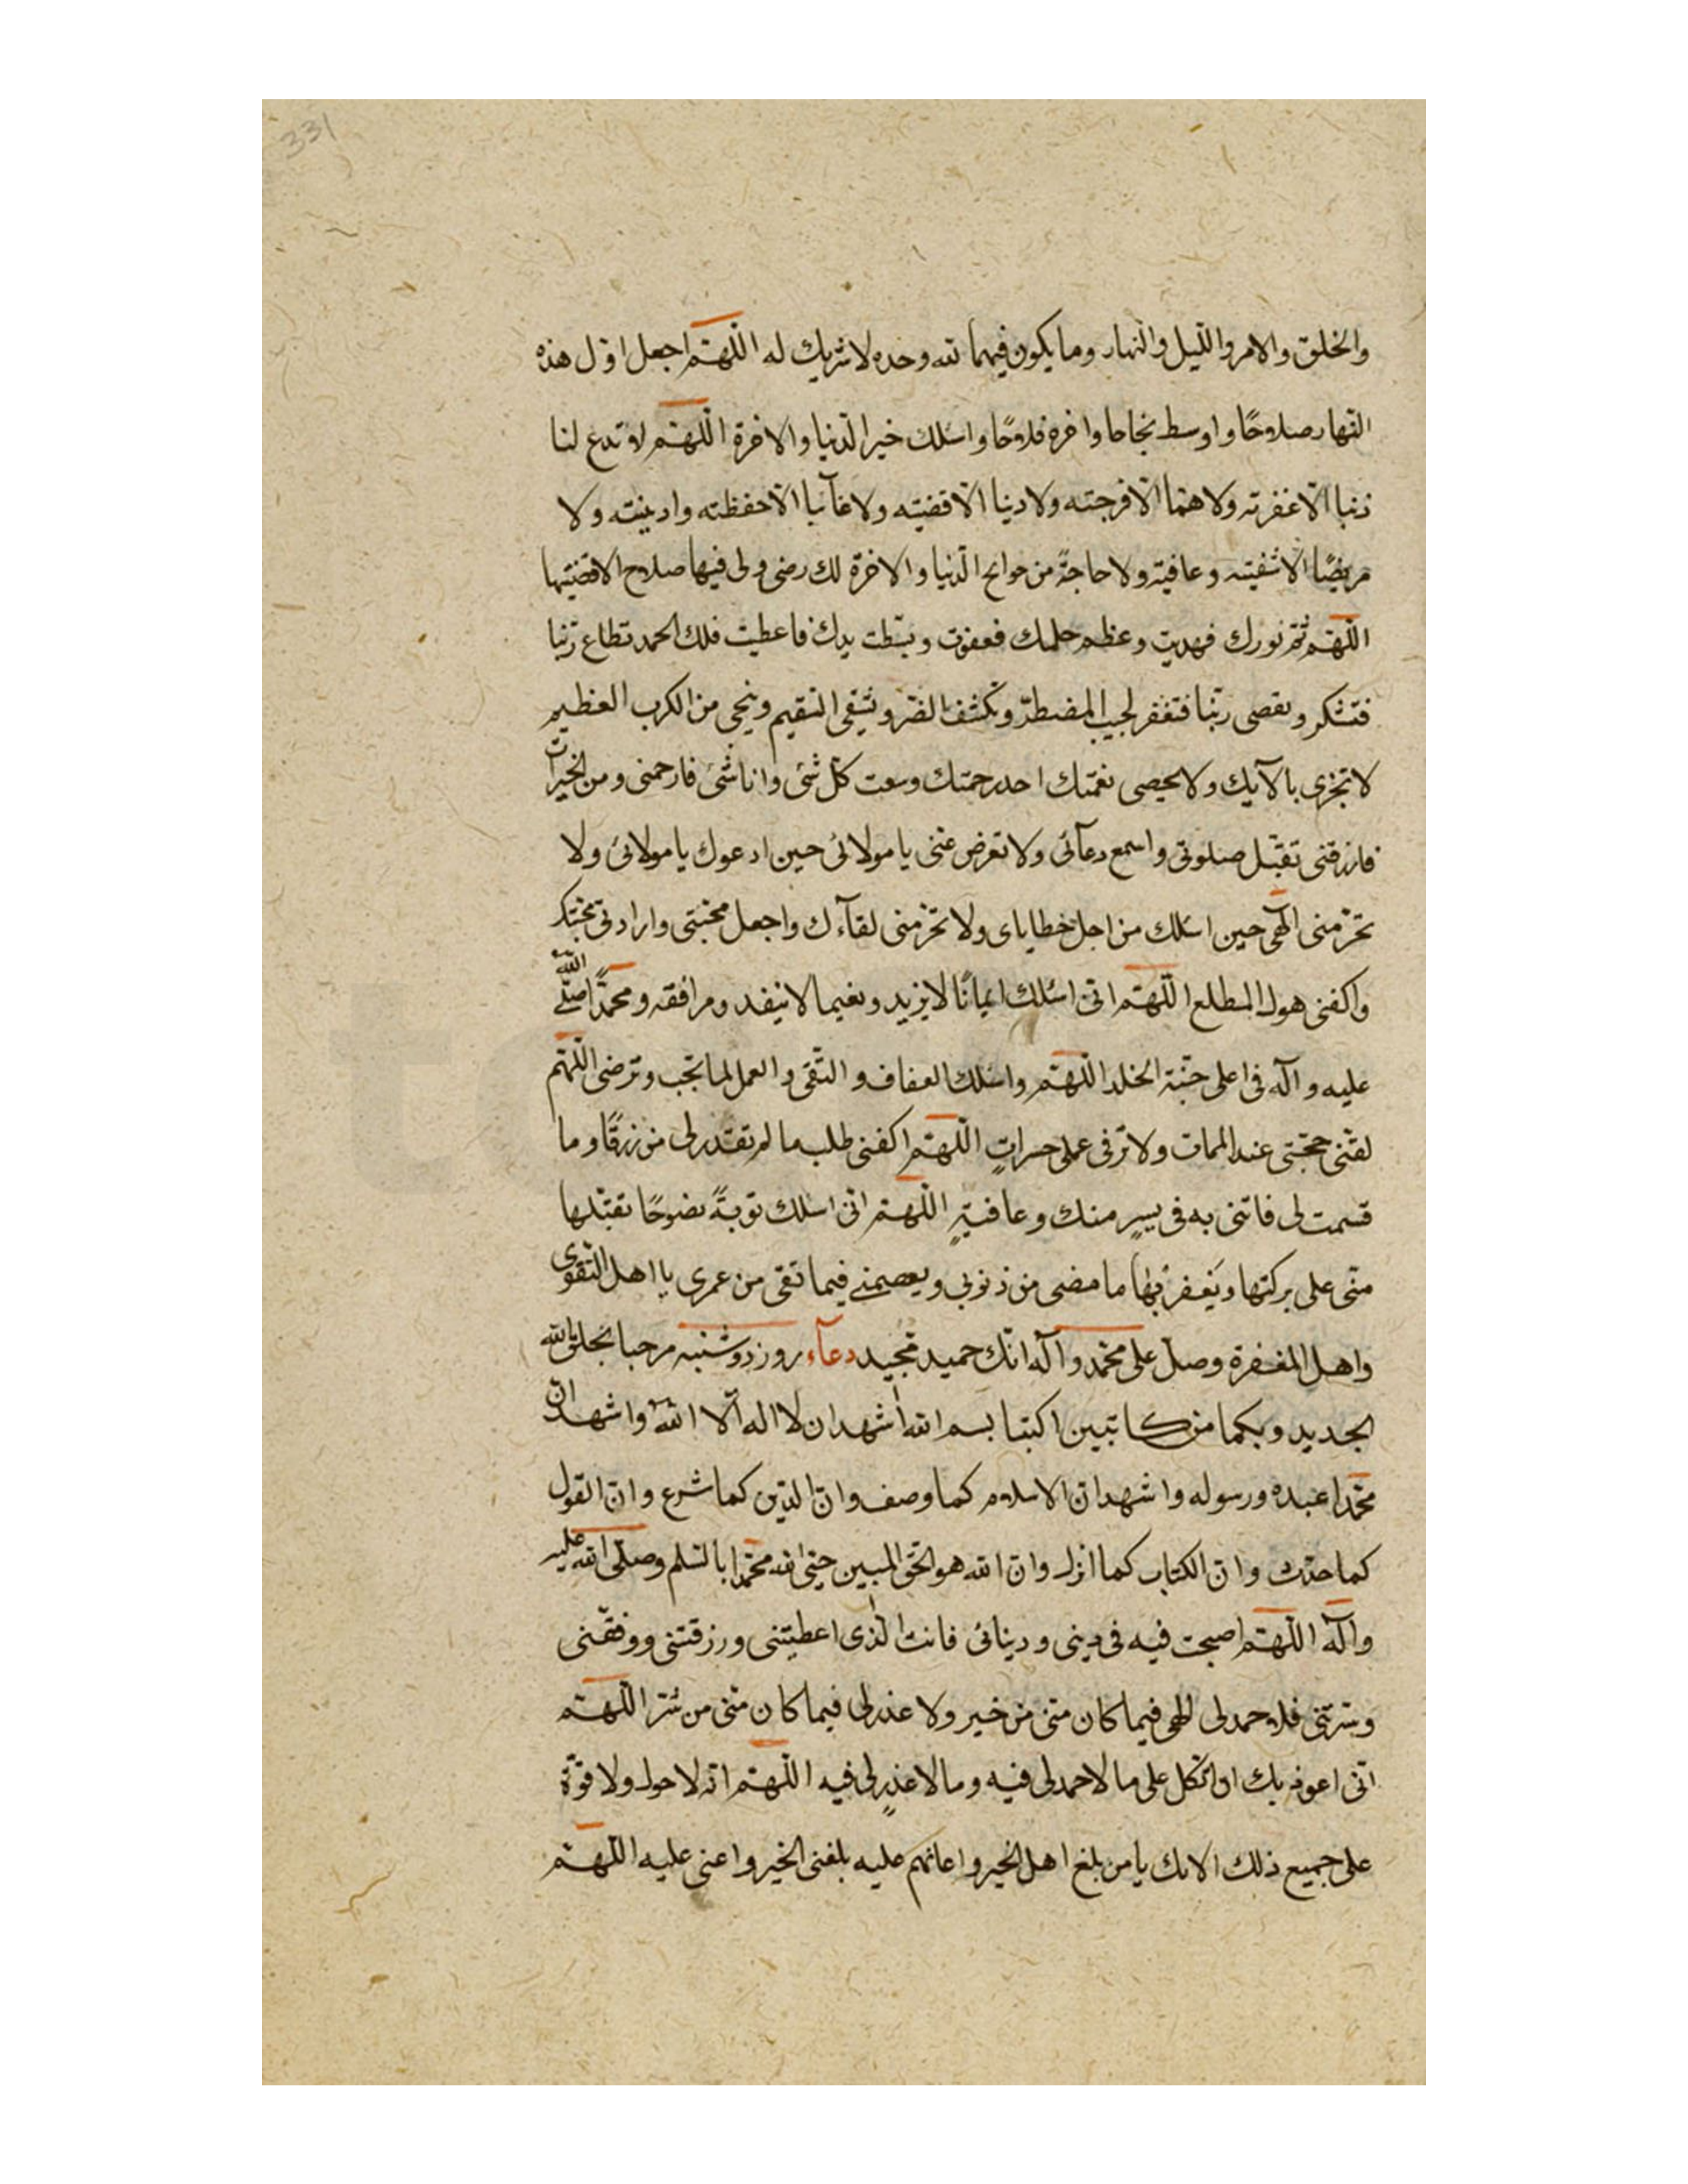 331
والخلق والامر والليل والنهار وما يكون فيهما لله وحده لا شريك له اللهم اجعل اول هذه
النهار صلاحًا واوسط نجاحا واخره فلاحًا واسئلك خير الدنيا والاخرة اللهم لا تدع لنا
ذنبا الا غفرته ولا همّا الا فرجته ولا دينا الا قضيته ولا غآئبا الا حفظته وادينته ولا
مريضًا الا شفيته وعافيته ولا حاجةً من حوائج الدنيا والاخرة لك رضى ولى فيها صلاح الا قضيتها
اللهم تمّ نورك فهديت وعظم حلمك فعفوت وبسّطت يدك فاعطيت فلك الحمد تطاع ربّنا
فتشكر وتعصى ربّنا فتغفر لجيب المضطرّ وتكشف الضرّ وتشفى السّقيم وينجى من الكرب العظيم
لا تجزى بالآيك ولا يحصى نعمتك احد رحمتك وسعت كلّ شئ وانا شئ فارحمنى ومن الخيرات
فارزقنى تقبّل صلوتى واسمع دعآئى ولا تعرض عنّى يا مولائى حين ادعوك يا مولائى ولا
تحرّمنى الٓهى حين اسئلك من اجل خطاياى ولا تحرّمنى لقآءك واجعل محبّتى وارادتى محبّتك
واكفنى هول المطلع اللهم انّى اسئلك ايمانًا لا يزيد ونعيما لا ينفد ومرافقه ومحمدًا صلّى الله
عليه وآله فى اعلى جنّة الخلد اللهم واسئلك العفاف والتّقى والعمل لما تحبّ وترضى اللهم
لقّنى حجّتى عند الممات ولا ترفى عملى حسراتٍ اللهم اكفنى طلب ما لم تقدر لى من رزقًا وما
قسمت لى فاتنى به فى يسرٍ منك وعافيةٍ اللهم انّى اسئلك توبةً نصوحًا تقبّلها
منّى على بركتها ويغفر بها ما مضى من ذنوبى ويعصمنى فيما تقى من عمرى يا اهل التّقوى
واهل المغفرة وصلّ على محمّد وآله انّك حميد مجيد دعآء روز دوشنبه مرحبا بخلق الله
الجديد وبكما من كاتبين اكتبا بسم الله اشهد ان لا اله الّا الله واشهد انّ
محمّدا عبده ورسوله واشهد انّ الاسلام كما وصف وانّ الدّين كما شرع وانّ القول
كما حدّث وانّ الكتاب كما انزل وانّ الله هو الحقّ المبين حيّى الله محمّدا بالسّلم وصلّى الله عليه
وآله اللهم اصبحت فيه فى دينى ودينائى فانت الّذى اعطيتنى ورزقتنى ووفقّنى
وسترتنى فلا حمد لى الهى فيما كان منّى من خير ولا عذر لى فيما كان منّى من شرّ اللهم
انّى اعوذ بك ان اتّكل على ما لا حمد لى فيه وما لا عذر لى فيه اللهم انّه لا حول ولا قوّة
على جميع ذلك الا بك يا من بلغ اهل الخير واعانهم عليه بلغنى الخير واعنى عليه اللهم